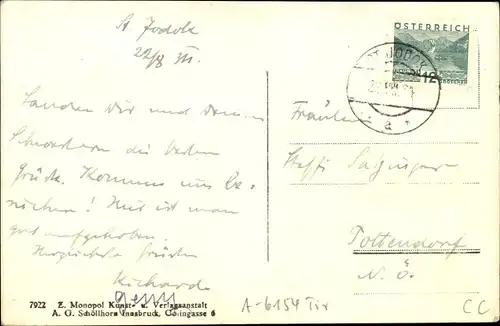 St Jodok
22/8 III.
ÖSTERREICH
12
ST. JODOK
a
Senden Dir und
Schwestern die besten
Grüße. Kommen uns be-
suchen! Hier ist man
gut aufgehoben.
Herzlichste Grüße
Richard
Fräulein
Steffi
Pottendorf
N. Ö.
7922 Z. Monopol Kunst- u. Verlagsanstalt
A. G. Schöllhorn Innsbruck, Colingasse 6
A-6154 Tir
CC